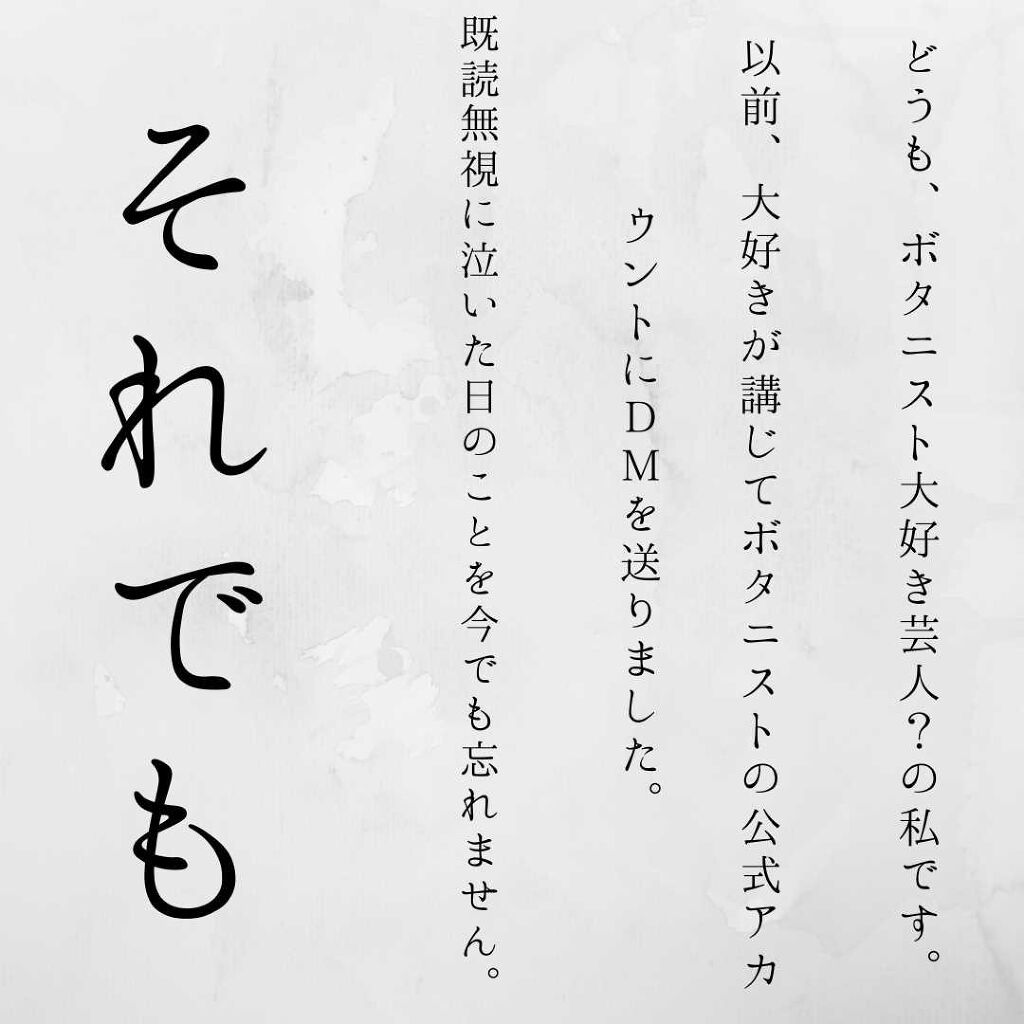 どうも、ボタニスト大好き芸人？の私です。
以前、大好きが講じてボタニストの公式アカ
ウントにＤＭを送りました。
既読無視に泣いた日のことを今でも忘れません。
それでも